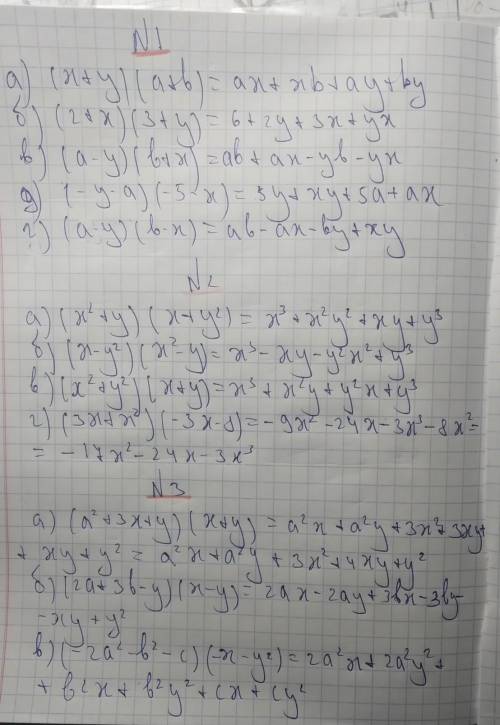 N1
а) (x+y)(a+b) = ax+xb+ay+by
б) (2+x)(3+y) = 6+2y+3x+yx
в) (a-y)(b+x) = ab+ax-yb-yx
д) (-y-a)(-5-x) = 5y+xy+5a+ax
г) (a-y)(b-x) = ab-ax-by+xy
N2
а) (x²+y)(x+y²) = x³+x²y²+xy+y³
б) (x-y²)(x²-y) = x³-xy-y²x²+y³
в) (x²+y²)(x+y) = x³+x²y+y²x+y³
г) (3x+x²)(-3x-8) = -9x²-24x-3x³-8x² =
= -17x²-24x-3x³
N3
а) (a²+3x+y)(x+y) = a²x+a²y+3x²+3xy+
+ xy+y² = a²x+a²y+3x²+4xy+y²
б) (2a+3b-y)(x-y) = 2ax-2ay+3bx-3by-
-xy+y²
в) (-2a²-b²-c)(-x-y²) = 2a²x+2a²y²+
+ b²x+b²y²+cx+cy²